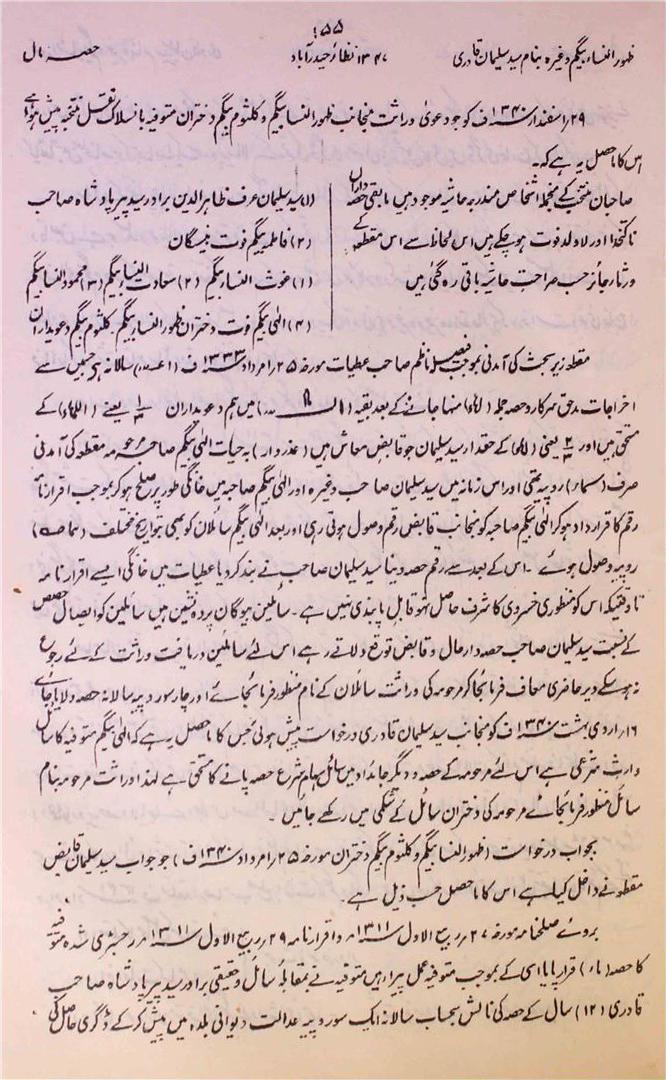 ۱۵۵
ظہور النساء بیگم وغیرہ بنام سید سلیمان قادری ۱۳۴۷ نظائر حیدرآباد حصہ مال
۲۹؍ اسفندار ۱۳۴۰ ف کو جو دعویٰ وراثت منجانب ظہور النساء بیگم و کلثوم بیگم دختران متوفیہ بانسلاک نقل منتخبہ پیش ہوا ہے
اس کا ماحصل یہ ہے کہ۔
صاحبان منتخب کے منجملہ اشخاص مندرجہ حاشیہ موجود ہیں مابقی حصہ داران
ناکتخدا اور لاولد فوت ہو چکے ہیں اس لحاظ سے اس مقطعہ کے
ورثار جائز حسب صراحت حاشیہ باقی رہ گئی ہیں
(۱) سید سلیمان عرف ظاہر الدین برادر سید پیر پادشاہ صاحب
(۲) فاطمہ بیگم فوت نبیسگان
(۱) غوث النساء بیگم (۲) سعادت النساء بیگم (۳) محمود النساء بیگم
(۴) الٰہی بیگم فوت دختران ظہور النساء بیگم۔ کلثوم بیگم دعویداران
مقطعہ زیر بحث کی آمدنی بموجب فیصلہ ناظم صاحب عطیات مورخہ ۲۵؍ امرداد ۱۳۳۳ ف سالانہ ہے جسمیں سے
اخراجات مدحق سرکار و حصہ جملہ منہا جانے کے بعد بقیہ میں ہم دعویداران یعنے کے
مستحق ہیں اور یعنی کے حقدار سید سلیمان جو قابض معاش ہیں (عذر دار) بہ حیات الٰہی بیگم صاحبہ مقطعہ کی آمدنی
صرف روپیہ تھی اور اس زمانہ میں سید سلیمان صاحب وغیرہ اور الٰہی بیگم صاحبہ میں خانگی طور پر صلح ہو کر بموجب اقرار نامہ
رقم کا قرار داد ہو کر الٰہی بیگم صاحبہ کو منجانب قابض رقم وصول ہوتی رہی اور بعد الٰہی بیگم سائلان کو بھی بتواریخ مختلف
روپیہ وصول ہوئے۔ اس کے بعد سے رقم حصہ دینا سید سلیمان صاحب نے بند کر دیا عطیات میں خانگی ایسے اقرار نامہ
تاوقتیکہ اس کو منظوری خسروی کا شرف حاصل نہو قابل پابندی نہیں ہے۔ سائلین بیوگان پردہ نشین ہیں سائلین کو ایصال حصص
کے نسبت سید سلیمان صاحب حصہ دار حال و قابض توقع دلاتے رہے اس لئے سائلین دریافت وراثت کے لئے رجوع
نہ ہو سکے دیر حاضری معاف فرمائیجا کر مرحومہ کی وراثت سائلان کے نام منظور فرمائیجائے اور چار سو روپیہ سالانہ حصہ دلایا جائے
۱۶؍ اردی بہشت ۱۳۴۰ ف کو منجانب سید سلیمان قادری درخواست پیش ہوئی جس کا ماحصل یہ ہے کہ الٰہی بیگم متوفیہ کا سائل
وارث شرعی ہے اس لئے مرحومہ کے حصہ و دیگر جائداد میں سائل سہام شرع حصہ پانے کا مستحق ہے لہذا وراثت مرحومہ بنام
سائل منظور فرمائیجائے مرحومہ کی دختران سائل کے شکمی میں رکھے جائیں۔
بجواب درخواست (ظہور النساء بیگم و کلثوم بیگم دختران مورخہ ۲۵؍ امرداد ۱۳۴۰ ف) جو جواب سید سلیمان قابض
مقطعہ نے داخل کیا ہے اس کا ماحصل حسب ذیل ہے۔
بروئے صلحنامہ مورخہ ۲۷؍ ربیع الاول ۱۳۱۱ و اقرار نامہ ۲۹؍ ربیع الاول ۱۳۱۱ رجسٹری شدہ متوفیہ
کا حصہ قرار پایا اسی کے بموجب متوفیہ عمل پیرا رہیں متوفیہ نے بمقابلہ سائل و حقیقی برادر سید پیر پادشاہ صاحب
قادری (۱۲) سال کے حصہ کی نالش بحساب سالانہ ایک سو روپیہ عدالت دیوانی بلدہ میں پیش کر کے ڈگری حاصل کی